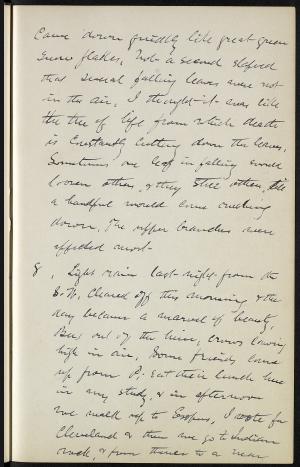 Came down grindly like great green
snow flakes, Not a second elapsed
that several falling leaves were not
in the air, I thought it was like
the tree of life from which death
is constantly cutting down the leaves,
Sometimes one leaf in falling would
loosen others, & they still others, till
a handful would come rushing
down, The upper branches were
affected most
8, Light rain last night from the
S.W, Cleared off this morning & the
day became a marvel of beauty,
Bees out of the hive, crows cawing
high in air, Some friends came
up from P. eat their lunch here
in my study, & in afternoon
we walk up to Esopus, I vote for
Cleveland & then we go to Indian
rock, & from thence to a near